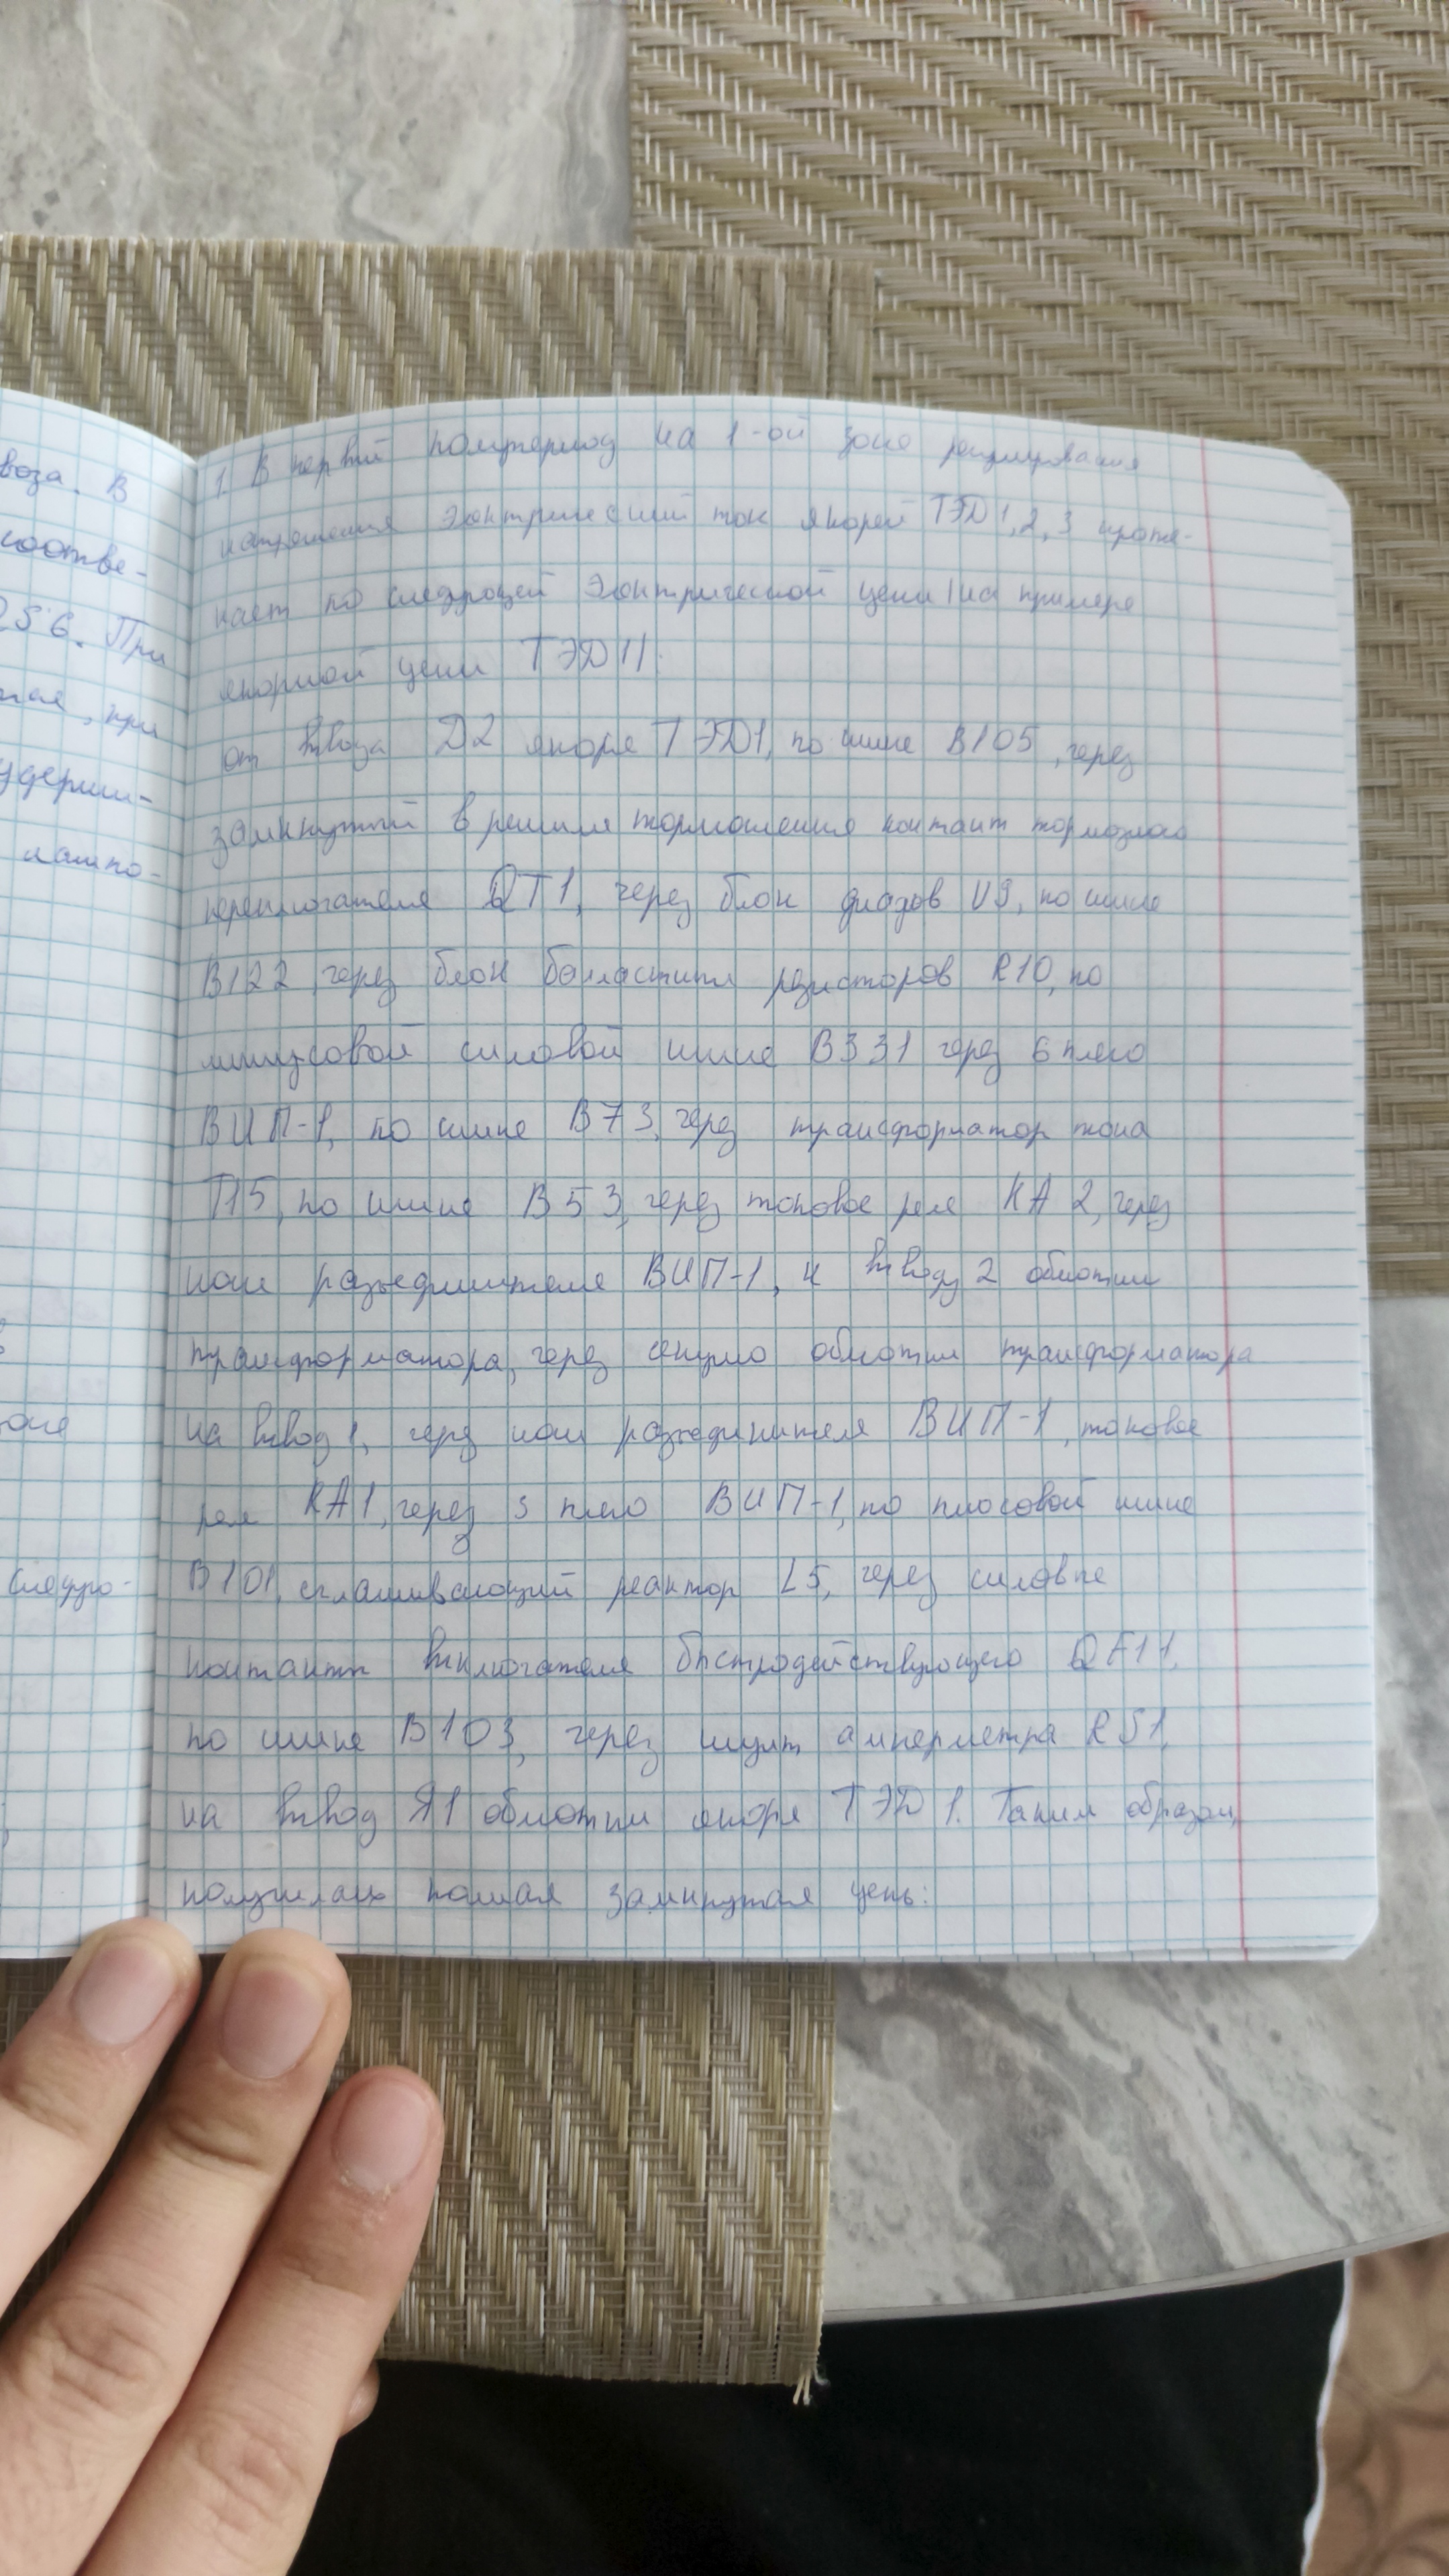 воза. В
соотве-
256. При
, при
удержи-
следую-
1. В первый полупериод на 1-ой зоне регулирования
напряжения электрический ток якорей ТЭД 1, 2, 3 проте-
кает по следующей электрической цепи (на примере
якорной цепи ТЭД 1):
от вывода Д2 якоря ТЭД1, по шине В105, через
замкнутый в режиме торможения контакт тормозного
переключателя QT1, через блок диодов U9, по шине
В122 через блок балластных резисторов R10, по
минусовой силовой шине В331 через 6 плечо
ВИП-1, по шине В73, через трансформатор тока
Т15, по шине В53, через токовое реле КА2, через
нож разъединителя ВИП-1, к выводу 2 обмотки
трансформатора, через секцию обмотки трансформатора
на вывод 1, через нож разъединителя ВИП-1, токовое
реле КА1, через 3 плечо ВИП-1, по плюсовой шине
В101, сглаживающий реактор L5, через силовые
контакты выключателя быстродействующего QF11,
по шине В103, через шунт амперметра RS1,
на вывод Я1 обмотки якоря ТЭД 1. Таким образом,
получилась полная замкнутая цепь: